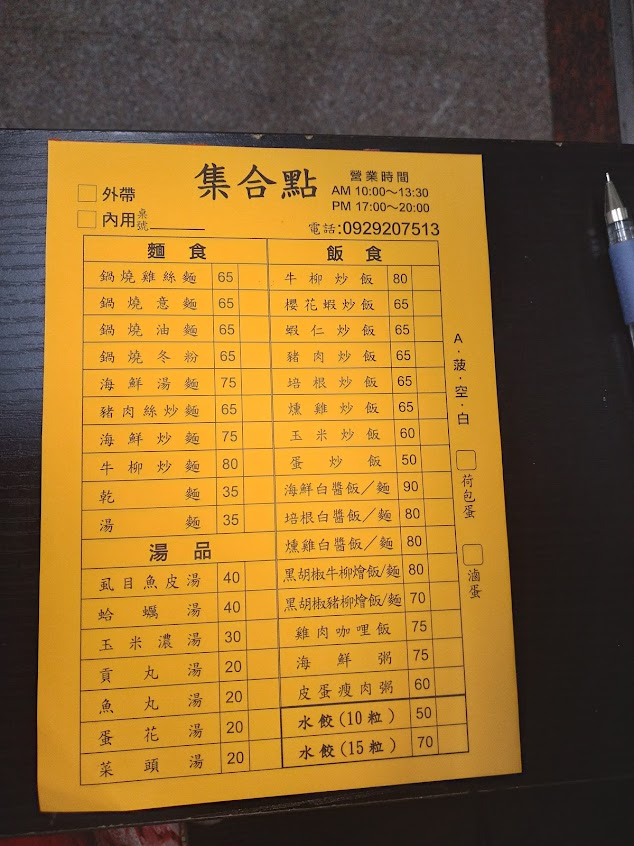 集合點
營業時間
AM 10:00～13:30
PM 17:00～20:00
電話:0929207513
外帶
內用 桌號
麵食
鍋燒雞絲麵 65
鍋燒意麵 65
鍋燒油麵 65
鍋燒冬粉 65
海鮮湯麵 75
豬肉絲炒麵 65
海鮮炒麵 75
牛柳炒麵 80
乾麵 35
湯麵 35
湯品
虱目魚皮湯 40
蛤蠣湯 40
玉米濃湯 30
貢丸湯 20
魚丸湯 20
蛋花湯 20
菜頭湯 20
飯食
牛柳炒飯 80
櫻花蝦炒飯 65
蝦仁炒飯 65
豬肉炒飯 65
培根炒飯 65
燻雞炒飯 65
玉米炒飯 60
蛋炒飯 50
海鮮白醬飯／麵 90
培根白醬飯／麵 80
燻雞白醬飯／麵 80
黑胡椒牛柳燴飯/麵 80
黑胡椒豬柳燴飯/麵 70
雞肉咖哩飯 75
海鮮粥 75
皮蛋瘦肉粥 60
水餃(10粒) 50
水餃(15粒) 70
A·菠·空·白
荷包蛋
滷蛋